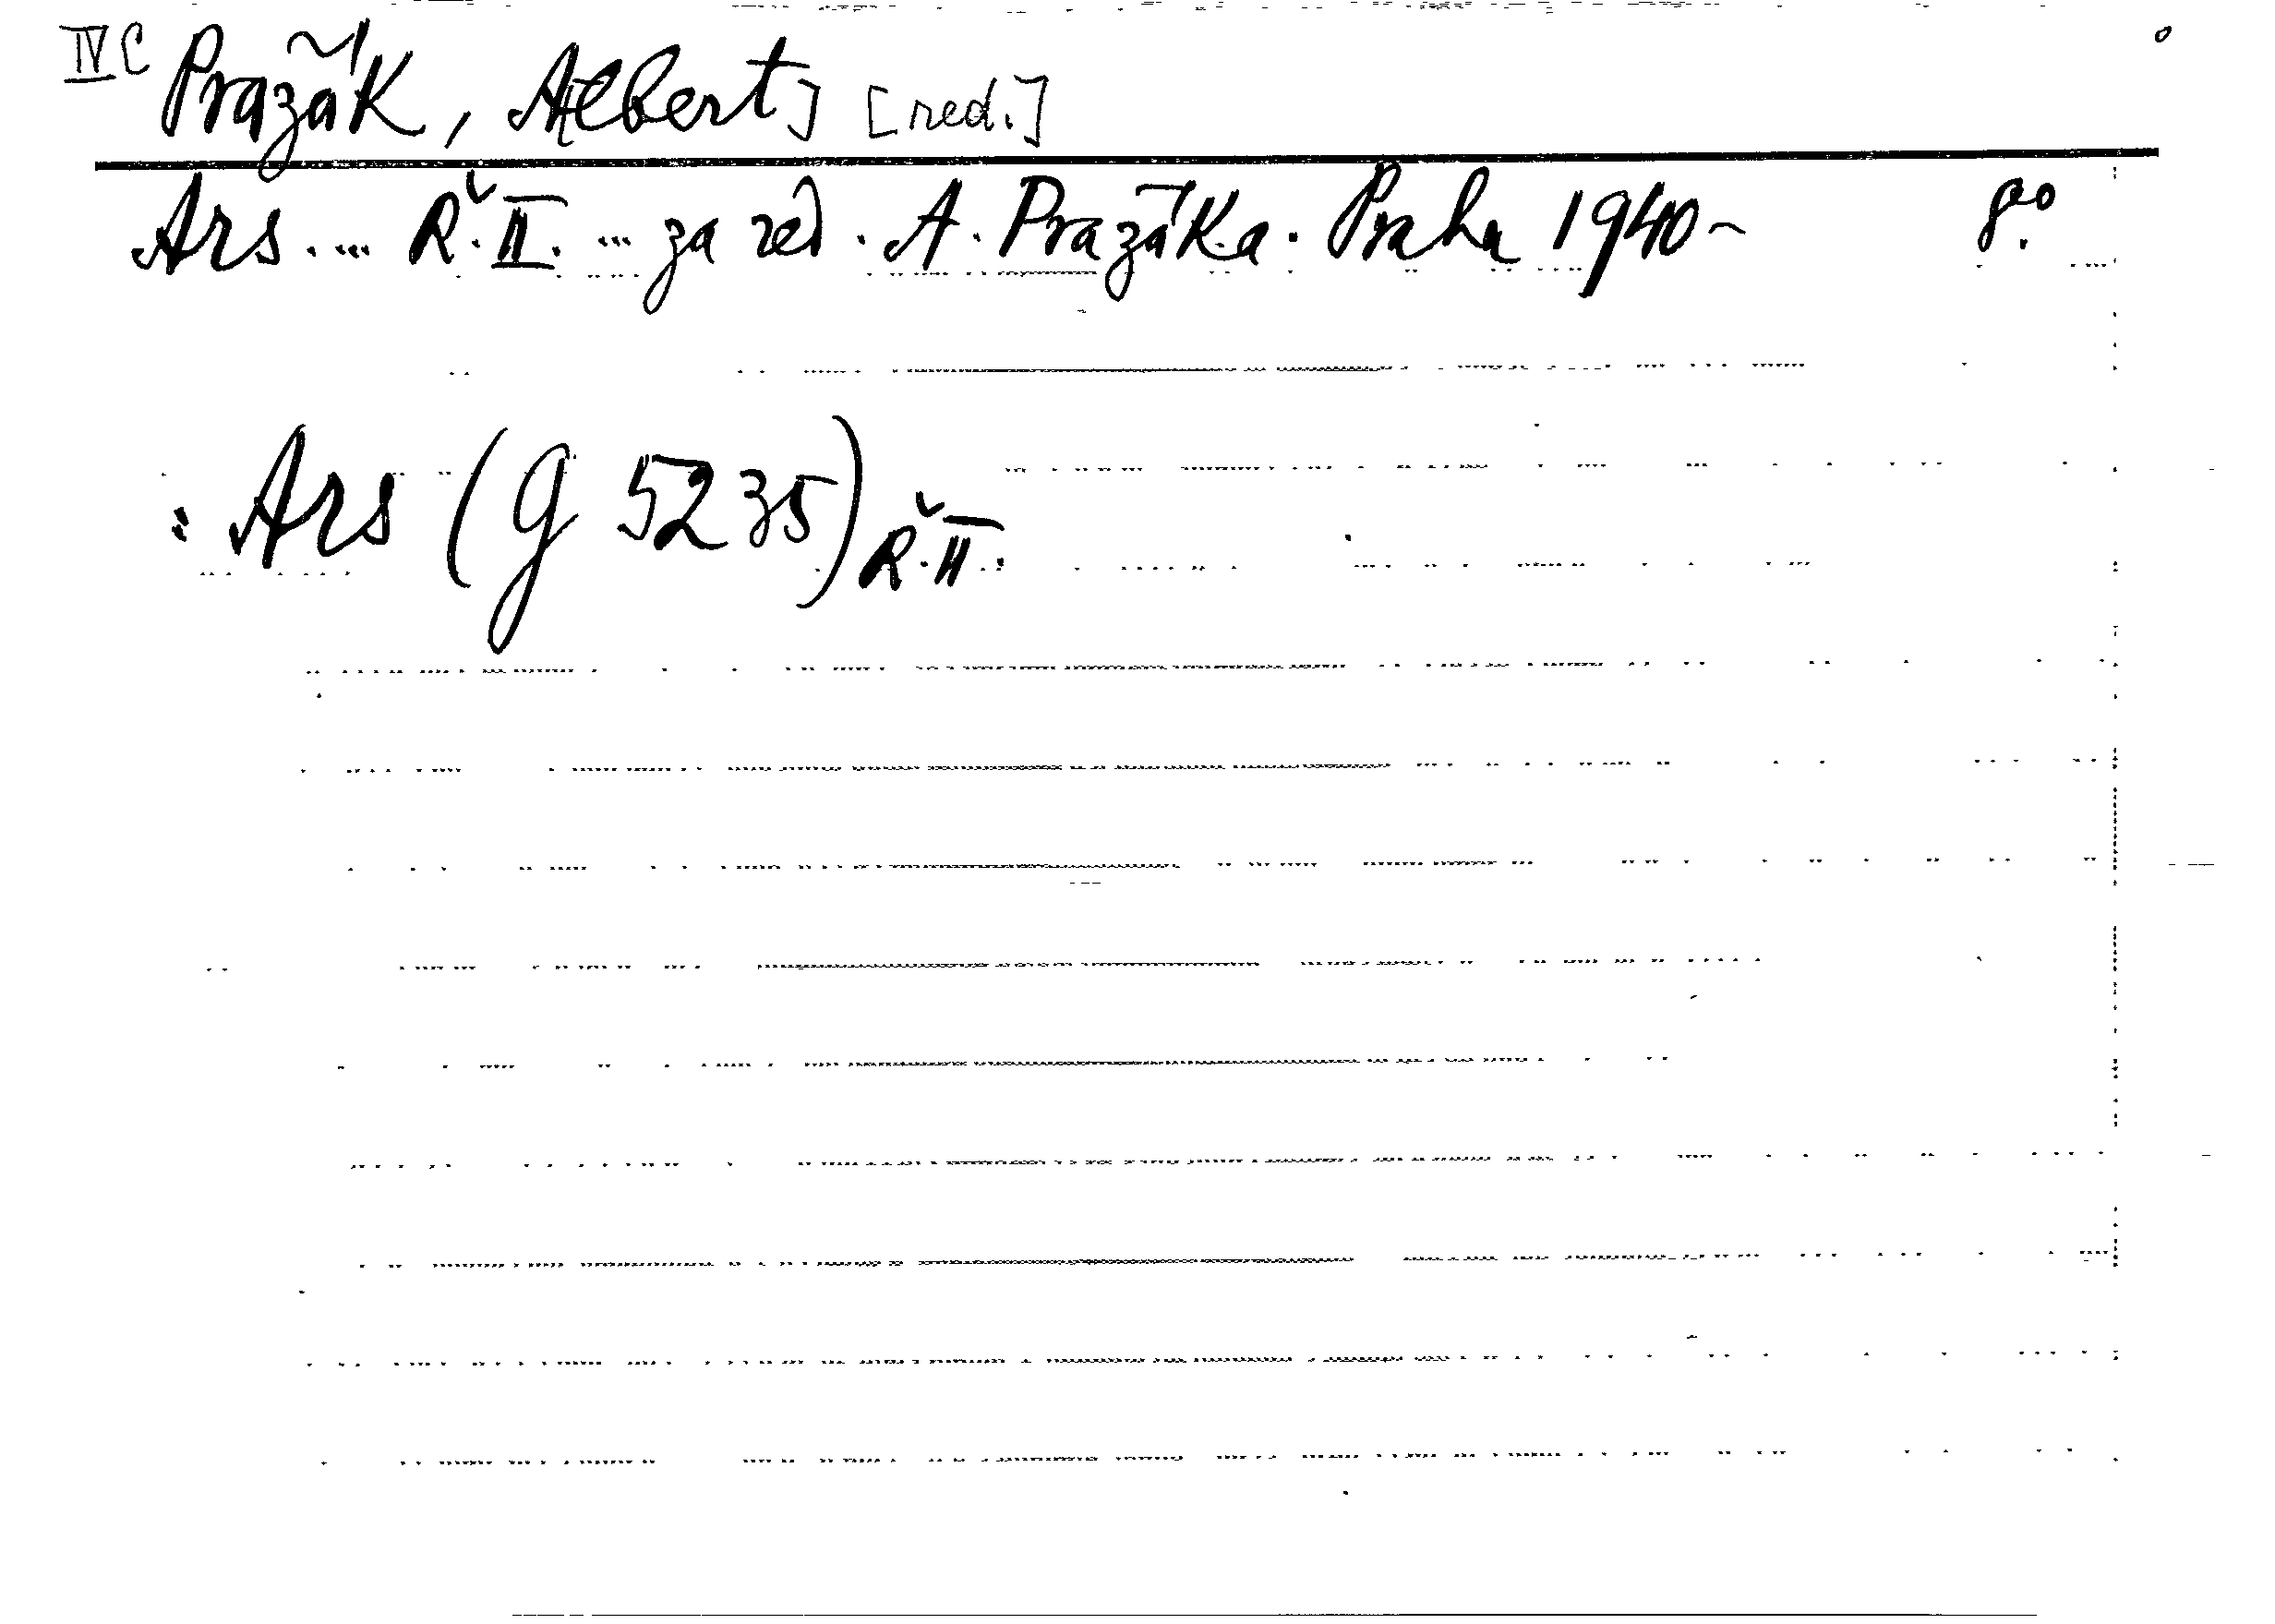 IV C Pražák, A[lbert] [red.]
Ars. ... Ř. II. ... za red. A. Pražáka. Praha 1940- 8°.
: Ars (g 5235) Ř. II.